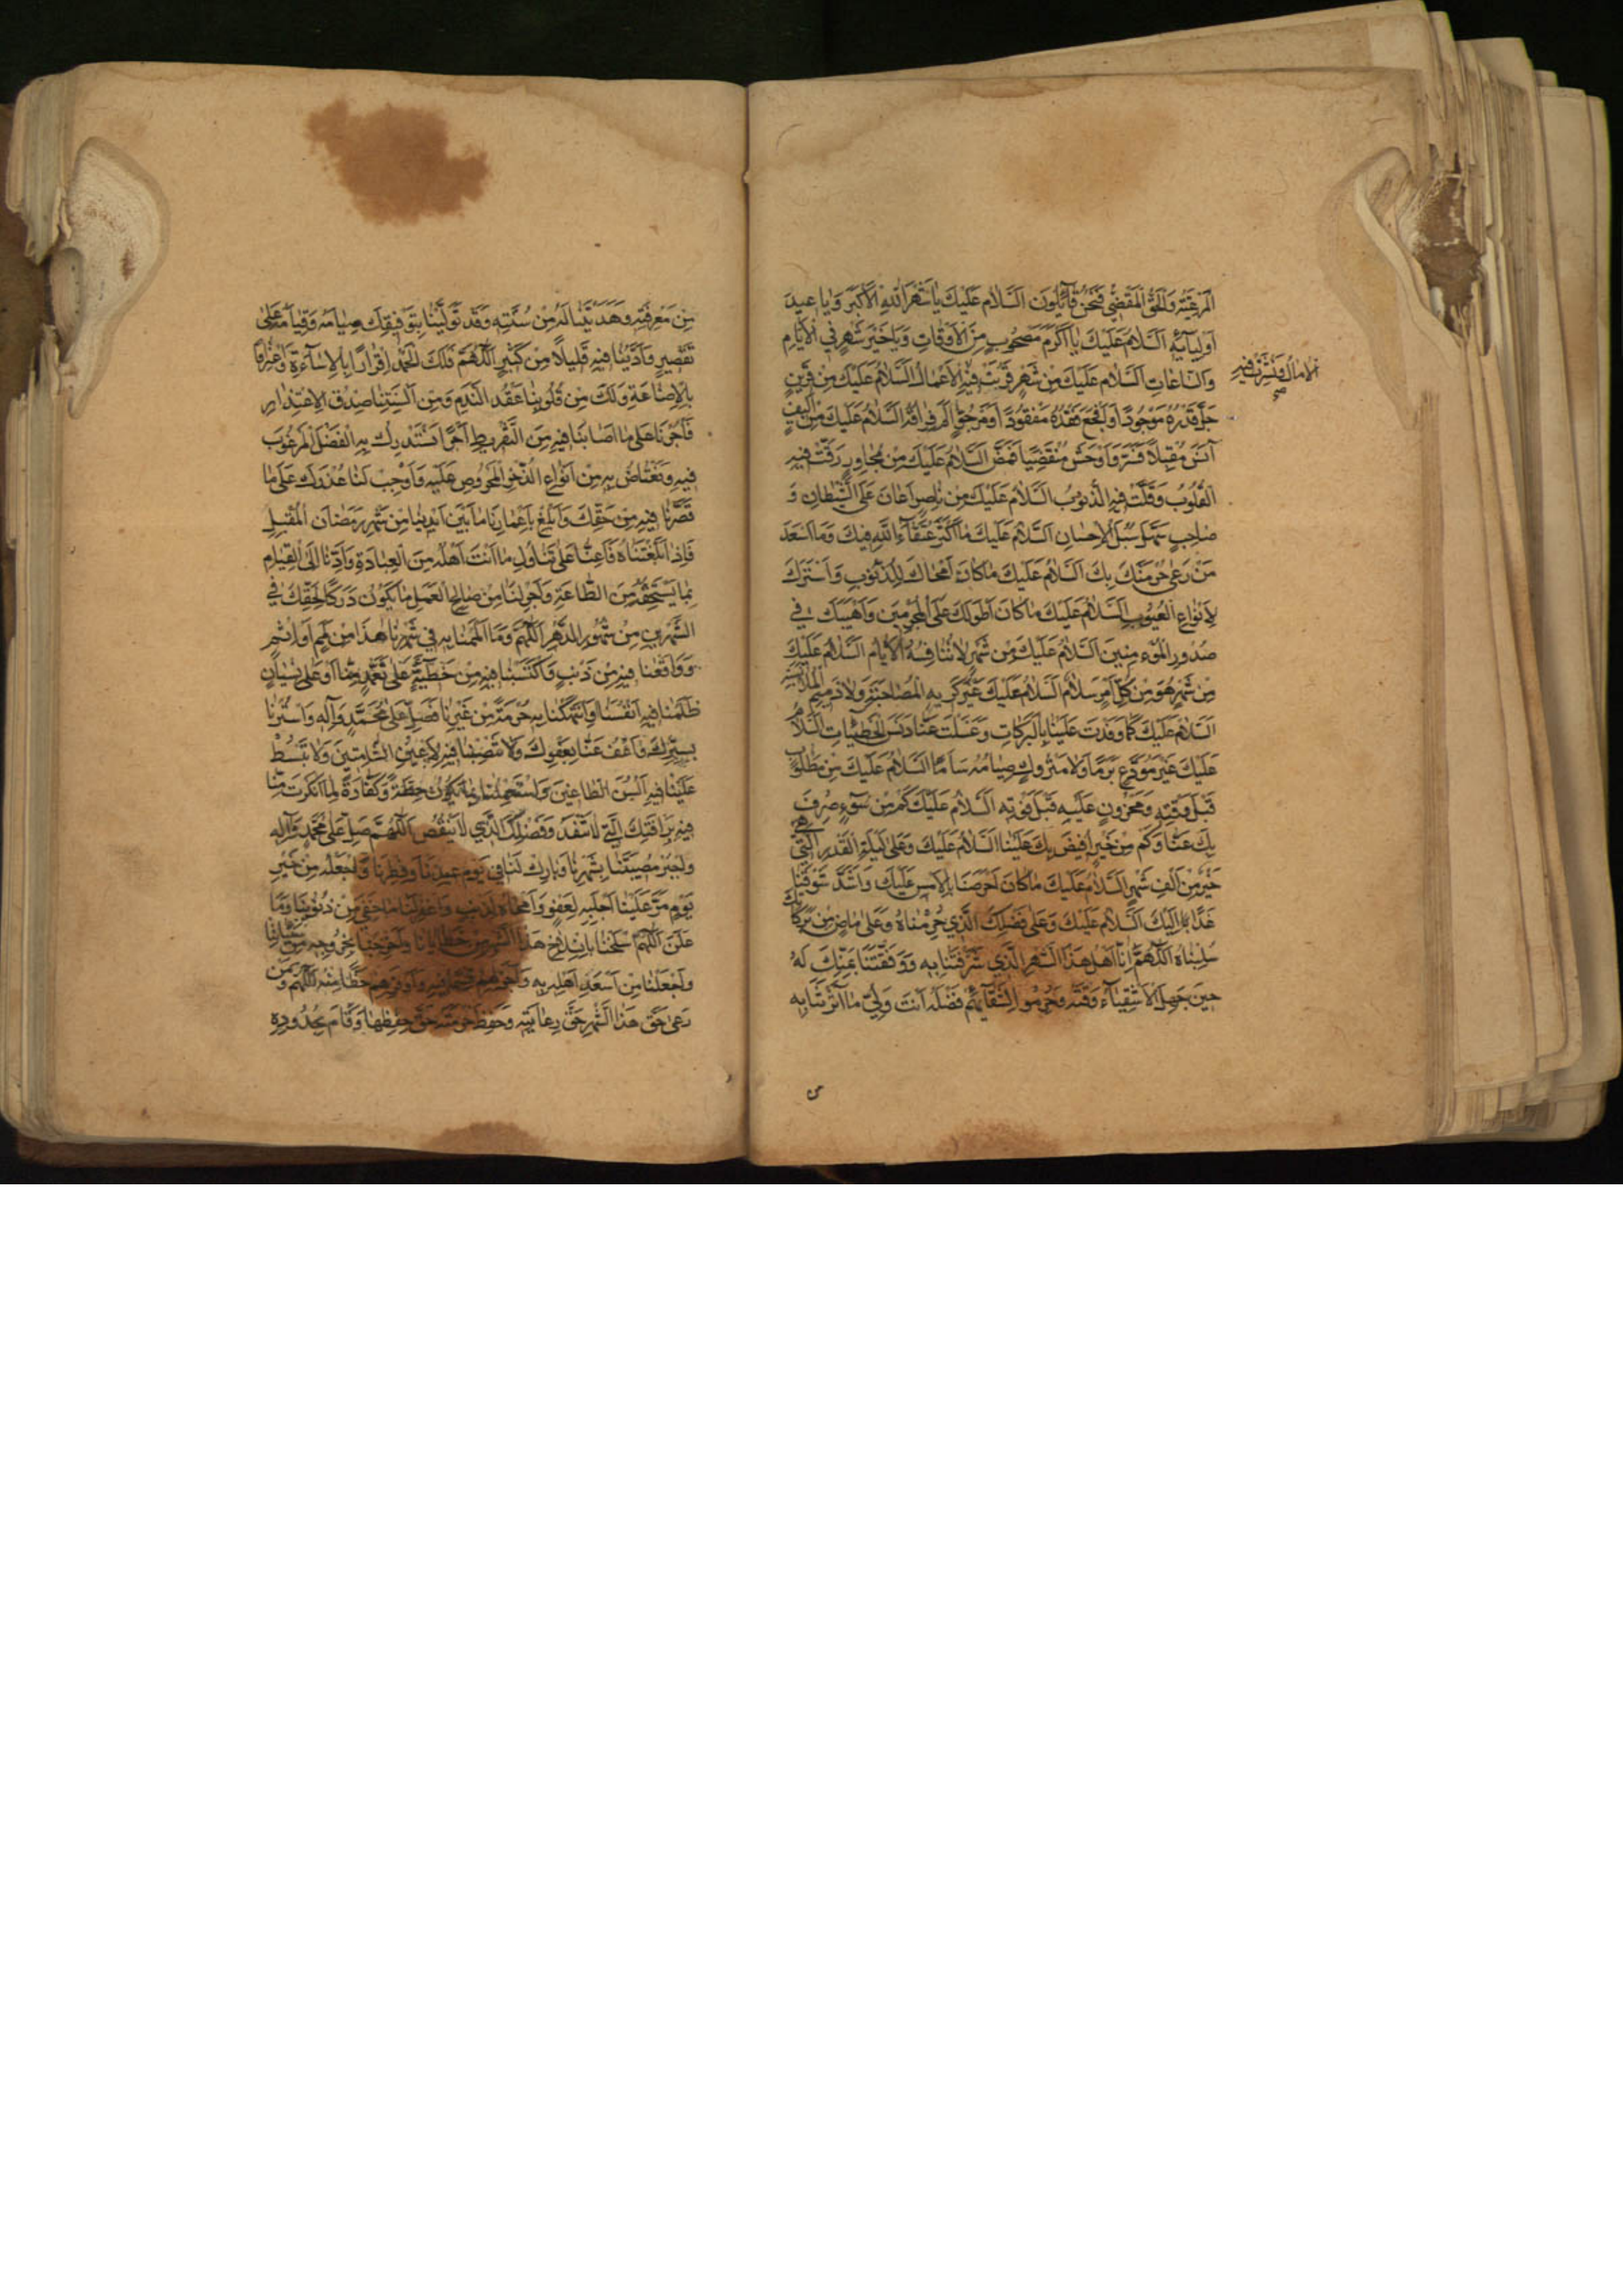 المرعيّة والحقّ المقضيّ فنحن قائلون السّلام عليك يا شهر الله الاكبر ويا عيد
اوليائه السّلام عليك يا اكرم مصحوب من الاوقات ويا خير شهر في الايّام
والسّاعات السّلام عليك من شهر قربت فيه الاعمال السّلام عليك من قرين
الامال ونشرت فيه
صح
جلّ قدره موجوداً وافجع فقده مفقوداً ومرجوّ الم فراقه السّلام عليك من اليف
آنس مقبلاً فسرّ واوحش منقضيا فمضّ السّلام عليك من مجاور رقّت فيه
القلوب وقلّت فيه الذّنوب السّلام عليك من ناصر اعان على الشّيطان و
صاحب سهّل سبل الاحسان السّلام عليك ما اكثر عتقاء الله فيك وما اسعد
من رعى حرمتك بك السّلام عليك ما كان امحاك للذّنوب واسترك
لانواع العيوب السّلام عليك ما كان اطولك على المجرمين واهيبك في
صدور المؤمنين السّلام عليك من شهر لا تنافسه الايّام السّلام عليك
من شهر هو من كلّ امر سلام السّلام عليك غير كريه المصاحبة ولا ذميم الملابسة
السّلام عليك كما وفدت علينا بالبركات وغسلت عنّا دنس الخطيئات السّلام
عليك غير مودّع برماً ولا متروك صيامه ساماً السّلام عليك من مطلوب
قبل وقته ومحزون عليه قبل فوته السّلام عليك كم من سوء صرف
بك عنّا وكم من خير افيض بك علينا السّلام عليك وعلى ليلة القدر الّتي هي
خير من الف شهر السّلام عليك ما كان احرصنا بالامس عليك واشدّ شوقنا
غداً اليك السّلام عليك وعلى فضلك الّذي حرمناه وعلى ماض من بركاتك
سلبناه اللّهمّ انّا اهل هذا الشّهر الّذي شرّفتنا به ووفّقتنا بمنّك له
حين جهل الاشقياء وقته وحرموا لشقائهم فضله انت وليّ ما آثرتنا به
من
من معرفته وهديتنا له من سنّته وقد تولّينا بتوفيقك صيامه وقيامه على
تقصير وادّينا فيه قليلاً من كثير اللّهمّ فلك الحمد اقراراً بالاساءة واعترافا
بالاضاعة ولك من قلوبنا عقد النّدم ومن السنتنا صدق الاعتذار
فاجرنا على ما اصابنا فيه من التّفريط اجراً نستدرك به الفضل المرغوب
فيه ونعتاض به من انواع الذّخر المحروص عليه واوجب لنا عذرك على ما
قصّرنا فيه من حقّك وابلغ باعمارنا ما بين ايدينا من شهر رمضان المقبل
فاذا ابلغتناه فاعنّا على تناول ما انت اهله من العبادة وادّنا الى القيام
بما يستحقّه من الطّاعة واجر لنا من صالح العمل ما يكون دركا لحقّك في
الشّهرين من شهور الدّهر اللّهمّ وما الممنا به في شهرنا هذا من لمم او اثم
وواقعنا فيه من ذنب واكتسبنا فيه من خطيئة على تعمّد منّا او على نسيان
ظلمنا فيه انفسنا وانتهكنا به حرمة من غيرنا فصلّ على محمّد وآله واسترنا
بسترك واعف عنّا بعفوك ولا تنصبنا فيه لاعين الشّامتين ولا تبسط
علينا فيه السن الطّاعنين واستعملنا بما يكون حطّة وكفّارة لما انكرت منّا
فيه برافتك الّتي لا تنفد وفضلك الّذي لا ينقص اللّهمّ صلّ على محمّد وآله
واجبر مصيبتنا بشهرنا وبارك لنا في يوم عيدنا وفطرنا واجعله من خير
يوم مرّ علينا اجلبه لعفو وامحاه لذنب واغفر لنا ما خفي من ذنوبنا وما
علن اللّهمّ اسلخنا بانسلاخ هذا الشّهر من خطايانا واخرجنا بخروجه من سيّئاتنا
واجعلنا من اسعد اهله به واجزلهم قسما فيه واوفرهم حظّا منه اللّهمّ ومن
رعى حقّ هذا الشّهر حقّ رعايته وحفظ حرمته حقّ حفظها وقام بحدوده